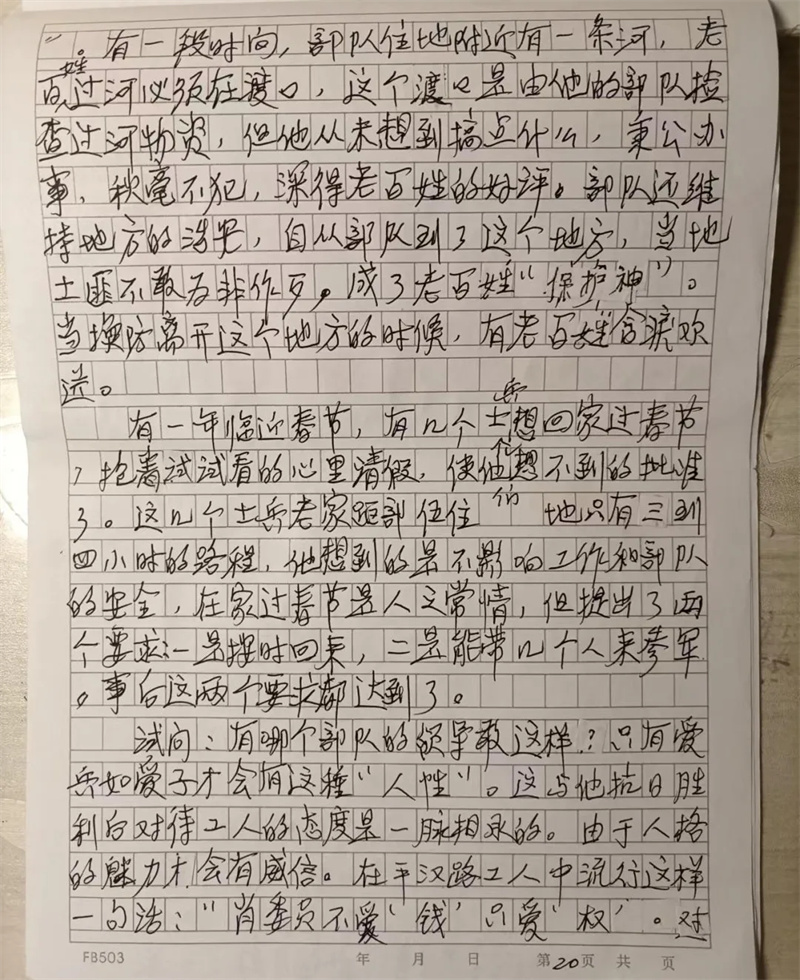 ”。有一段时间，部队住地附近有一条河，老
百姓过河必须在渡口，这个渡口是由他的部队检
查过河物资，但他从未想到搞点什么，秉公办
事，秋毫不犯，深得老百姓的好评。部队还维
持地方的治安，自从部队到了这个地方，当地
土匪不敢为非作歹，成了老百姓“保护神”。
当换防离开这个地方的时候，有老百姓含泪欢
送。
有一年临近春节，有几个士兵想回家过春节
，抱着试试看的心里请假，使他们想不到的批准
了。这几个士兵老家距部伍住地只有三到
四小时的路程，他想到的是不影响工作和部队
的安全，在家过春节是人之常情，但提出了两
个要求：一是按时回来，二是能带几个人来参军
。事后这两个要求都达到了。
试问：有哪个部队的领导敢这样？只有爱
兵如爱子才会有这种“人性”。这与他抗日胜
利后对待工人的态度是一脉相承的。由于人格
的魅力才会有威信。在平汉路工人中流行这样
一句话：“肖委员不爱‘钱’只爱‘权’。对
FB503 年 月 日 第20页 共 页